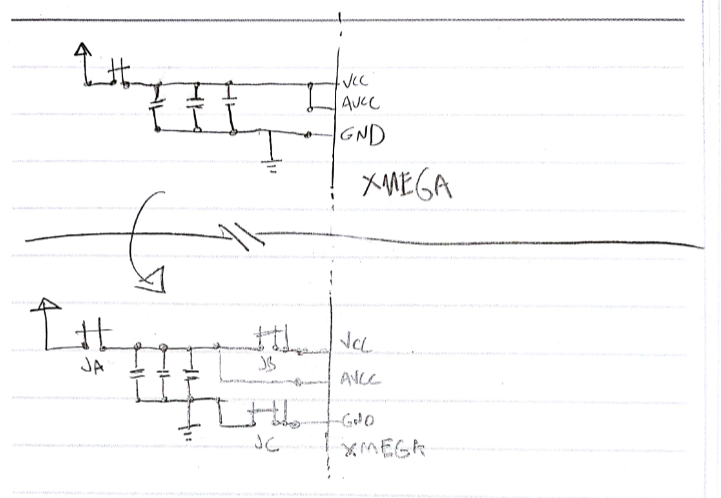 VCC
AVCC
GND
XMEGA
JA
JB
VCC
AVCC
JC
GND
XMEGA